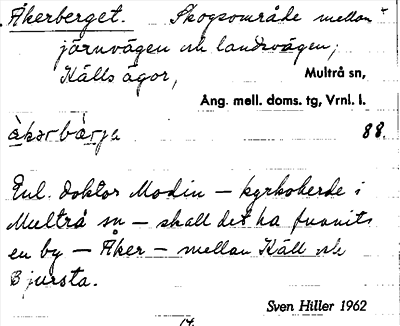 Åkerberget. Skogsområde mellan
järnvägen och landsvägen,
Källs ägor, Multrå sn,
Ång. mell. doms. tg, Vrnl. l.
àkərbä̀rja 88.
Enl. doktor Modin – kyrkoherde i
Multrå sn – skall det ha funnits
en by – Åker – mellan Käll och
Bjursta.
Sven Hiller 1962
14.